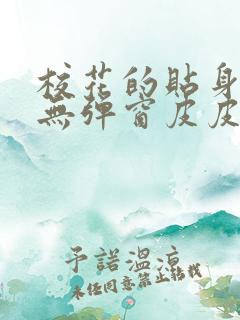 校花的貼身
無彈窗皮皮
予諾溫涼
未经同意禁止转载